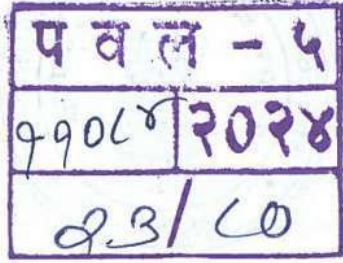 प व ल - ५
११०८४ २०२४
२३/८०